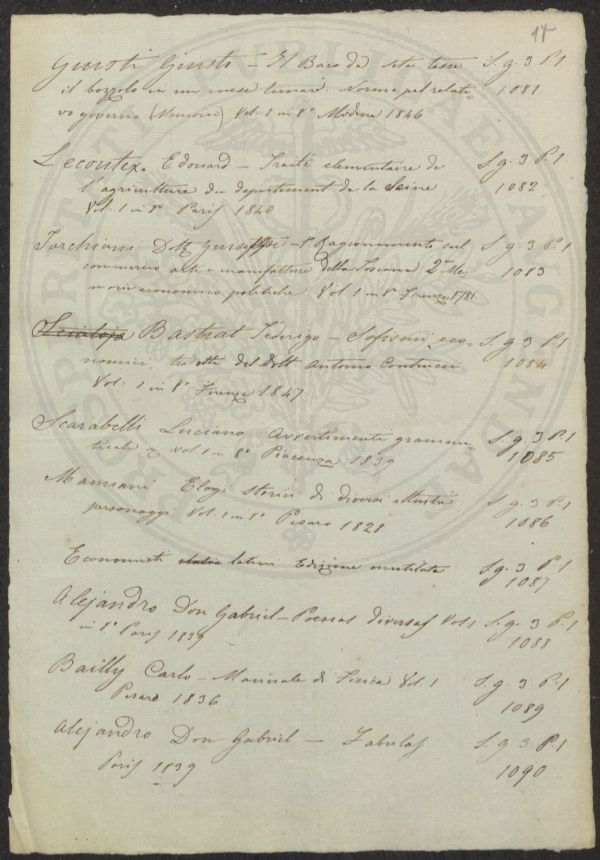 17
Giusti Giusto – Il Baco da seta tesse S. g. 3 P. 1
il bozzolo in un mese lunare. Norme pel relati- 1081
vo governo (Memoria) Vol. 1 in 8º Modena 1846
Lecoutex Edouard – Traité elementaire de S. g. 3 P. 1
l'agriculture du departement de la Seine 1082
Vol. 1 in 8º Paris 1840
Dott Giuseppe – Ragionamento sul S. g. 3 P. 1
commercio arti e manifatture della Toscana 2ª Me- 1083
morie economico politiche Vol 1 in 8º Firenze 1781
Bastiat Federigo – Sofismi eco- S. g. 3 P. 1
nomici tradotti dal Dott Antonio Contrucci 1084
Vol: 1 in 8º Firenze 1847
Scarabelli Luciano Avvertimente gramma S. g. 3 P. 1
ticali Vol. 1 in 8º Piacenza 1839 1085
Mamiani Elogi storici di diversi illustri S. g. 3 P. 1
personaggi Vol. 1 in 8º Pesaro 1828 1086
Economisti latini Edizione mutilata S. g. 3 P. 1
1087
Alejandro Don Gabriel – Poesias diversas Vol: 1 S. g. 3 P. 1
in 8º Paris 1839 1088
Bailly Carlo – Manuale di Fisica Vol. 1 S. g. 3 P. 1
Pesaro 1836 1089
Alejandro Don Gabriel – Fabulas S. g. 3 P. 1
Paris 1839 1090